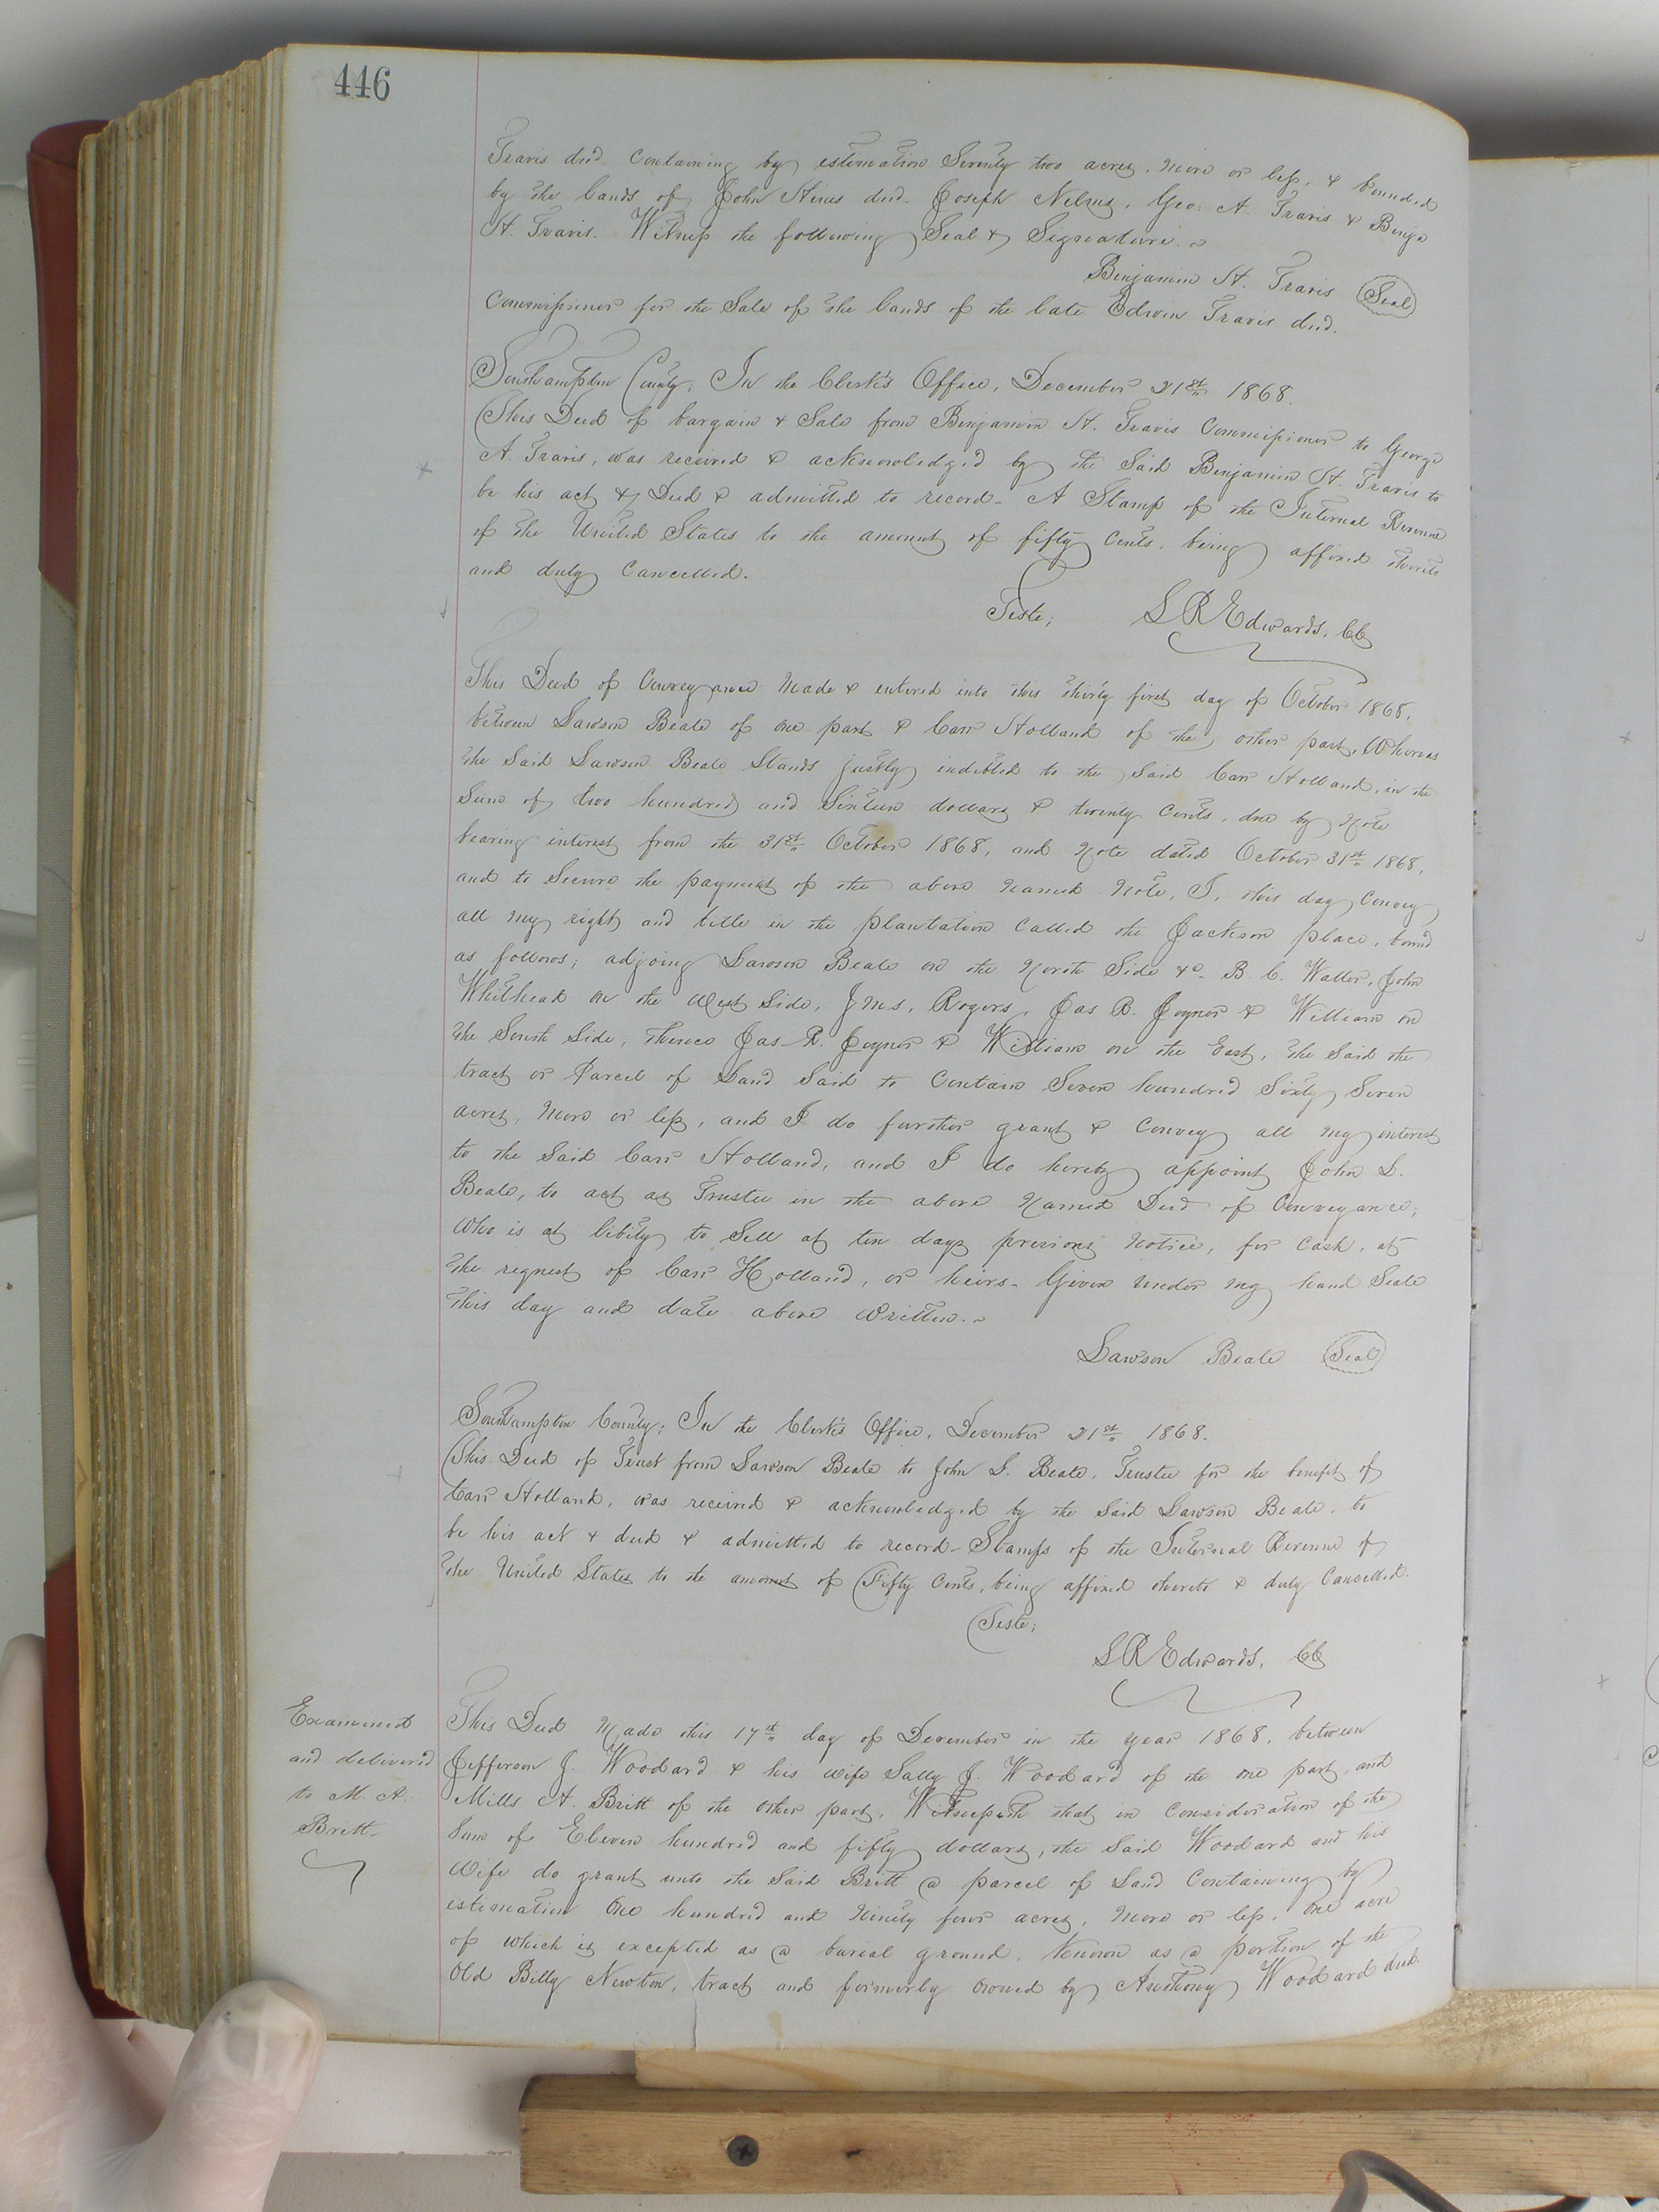 446
Travis decd. Containing by estimation Seventy two acres, more or less, & bounded
by the lands of John Hines decd. Joseph Nelms, Geo: A. Travis & Benja
H. Travis. Witness the following Seal & Signature.
Benjamin H. Travis (Seal)
Commissioner for the Sale of the lands of the late Edwin Travis decd.
Southampton County, In the Clerk's Office, December 21st 1868.
This Deed of bargain & Sale from Benjamin H. Travis Commissioner to George
A. Travis, was received & acknowledged by the Said Benjamin H. Travis to
be his act & Deed & admitted to record - A Stamp of the Internal Revenue
of the United States to the amount of fifty Cents, being affixed thereto
and duly Cancelled.
Teste; L R Edwards, CC
This Deed of Conveyance made & entered into this thirty first day of October 1868,
between Lawson Beale of one part & Carr Holland of the other part, Whereas
the Said Lawson Beale Stands justly indebted to the Said Carr Holland, in the
Sum of two hundred and Sixteen dollars & twenty Cents, due by Note
bearing interest from the 31st October 1868, and Note dated October 31st 1868,
and to Secure the payment of the above named Note, I, this day Convey
all my right and title in the plantation Called the Jackson place, bound
as follows; adjoing Lawson Beale on the North Side &c. B. C. Waller, John
Whithead on the West Side, J M S, Rogers, Jas R. Joyner & William on
the South Side, thence Jas R. Joyner & William on the East, the Said the
tract or Parcel of Land Said to Contain Seven hundred Sixty Seven
acres, more or less, and I do further grant & Convey all my interest
to the Said Carr Holland, and I do hereby appoint John L.
Beale, to act as Trustee in the above Named Deed of Conveyance;
Who is at libity to Sell at ten days previous notice, for Cash, at
the request of Carr Holland, or heirs - Given under my hand Seale
this day and date above written.
Lawson Beale (Seal)
Southampton County; In the Clerk's Office, December 21st 1868.
This Deed of Trust from Lawson Beale to John L. Beale, Trustee for the benefit of
Carr Holland, was received & acknowledged by the Said Lawson Beale, to
be his act & deed & admitted to record - Stamps of the Internal Revenue of
the United States to the amount of Fifty Cents, being affixed thereto & duly Cancelled.
Teste;
L R Edwards, CC
Examined
and delivered
to M. A.
Britt
This Deed Made this 17th day of December in the year 1868, between
Jefferson J. Woodard & his wife Sally J. Woodard of the one part, and
Mills A. Britt of the other part, Witnesseth that in Consideration of the
Sum of Eleven hundred and fifty dollars, the Said Woodard and his
Wife do grant unto the Said Britt a parcel of Land Containing by
estimation One hundred and Ninety four acres, more or less, One acre
of which is excepted as a burial ground, Known as a portion of the
Old Billy Newton, tract and formerly owned by Anthony Woodard decd.